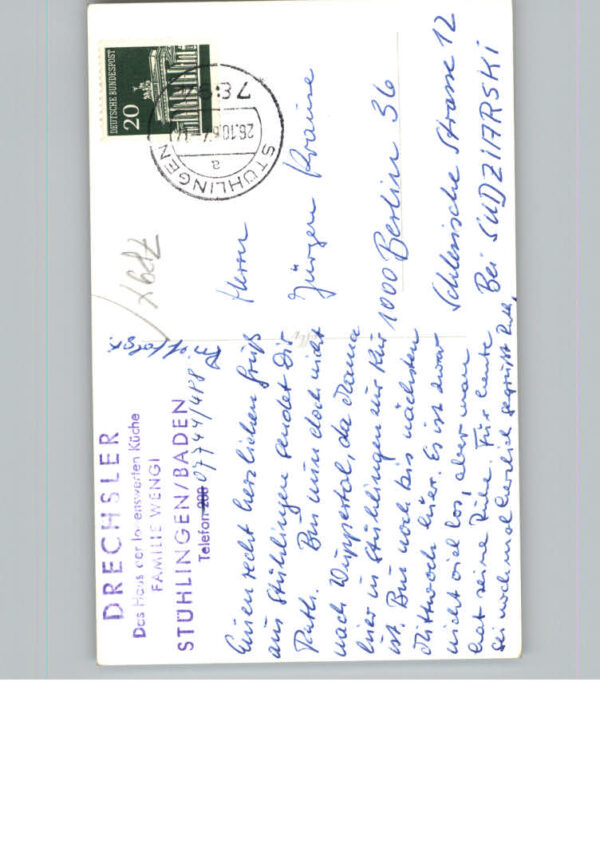 DRECHSLER
Das Haus der lobenswerten Küche
FAMILIE WENGI
STÜHLINGEN/BADEN
Telefon 208 07744/488
Einen recht herzlichen Gruß
aus Stühlingen sendet Dir
Ruth. Bin nun doch nicht
nach Wuppertal, da Mama
hier in Stühlingen zur Kur
ist. Bin noch bis nächsten
Mittwoch hier. Es ist zwar
nicht viel los, aber man
hat seine Ruhe. Für heute
sei nochmal herzlich gegrüßt Ruth
DEUTSCHE BUNDESPOST
20
STÜHLINGEN
a
26.10.67
Herrn
Jürgen Krause
1000 Berlin 36
Schlesische Strasse 12
Bei SUDZIARSKI